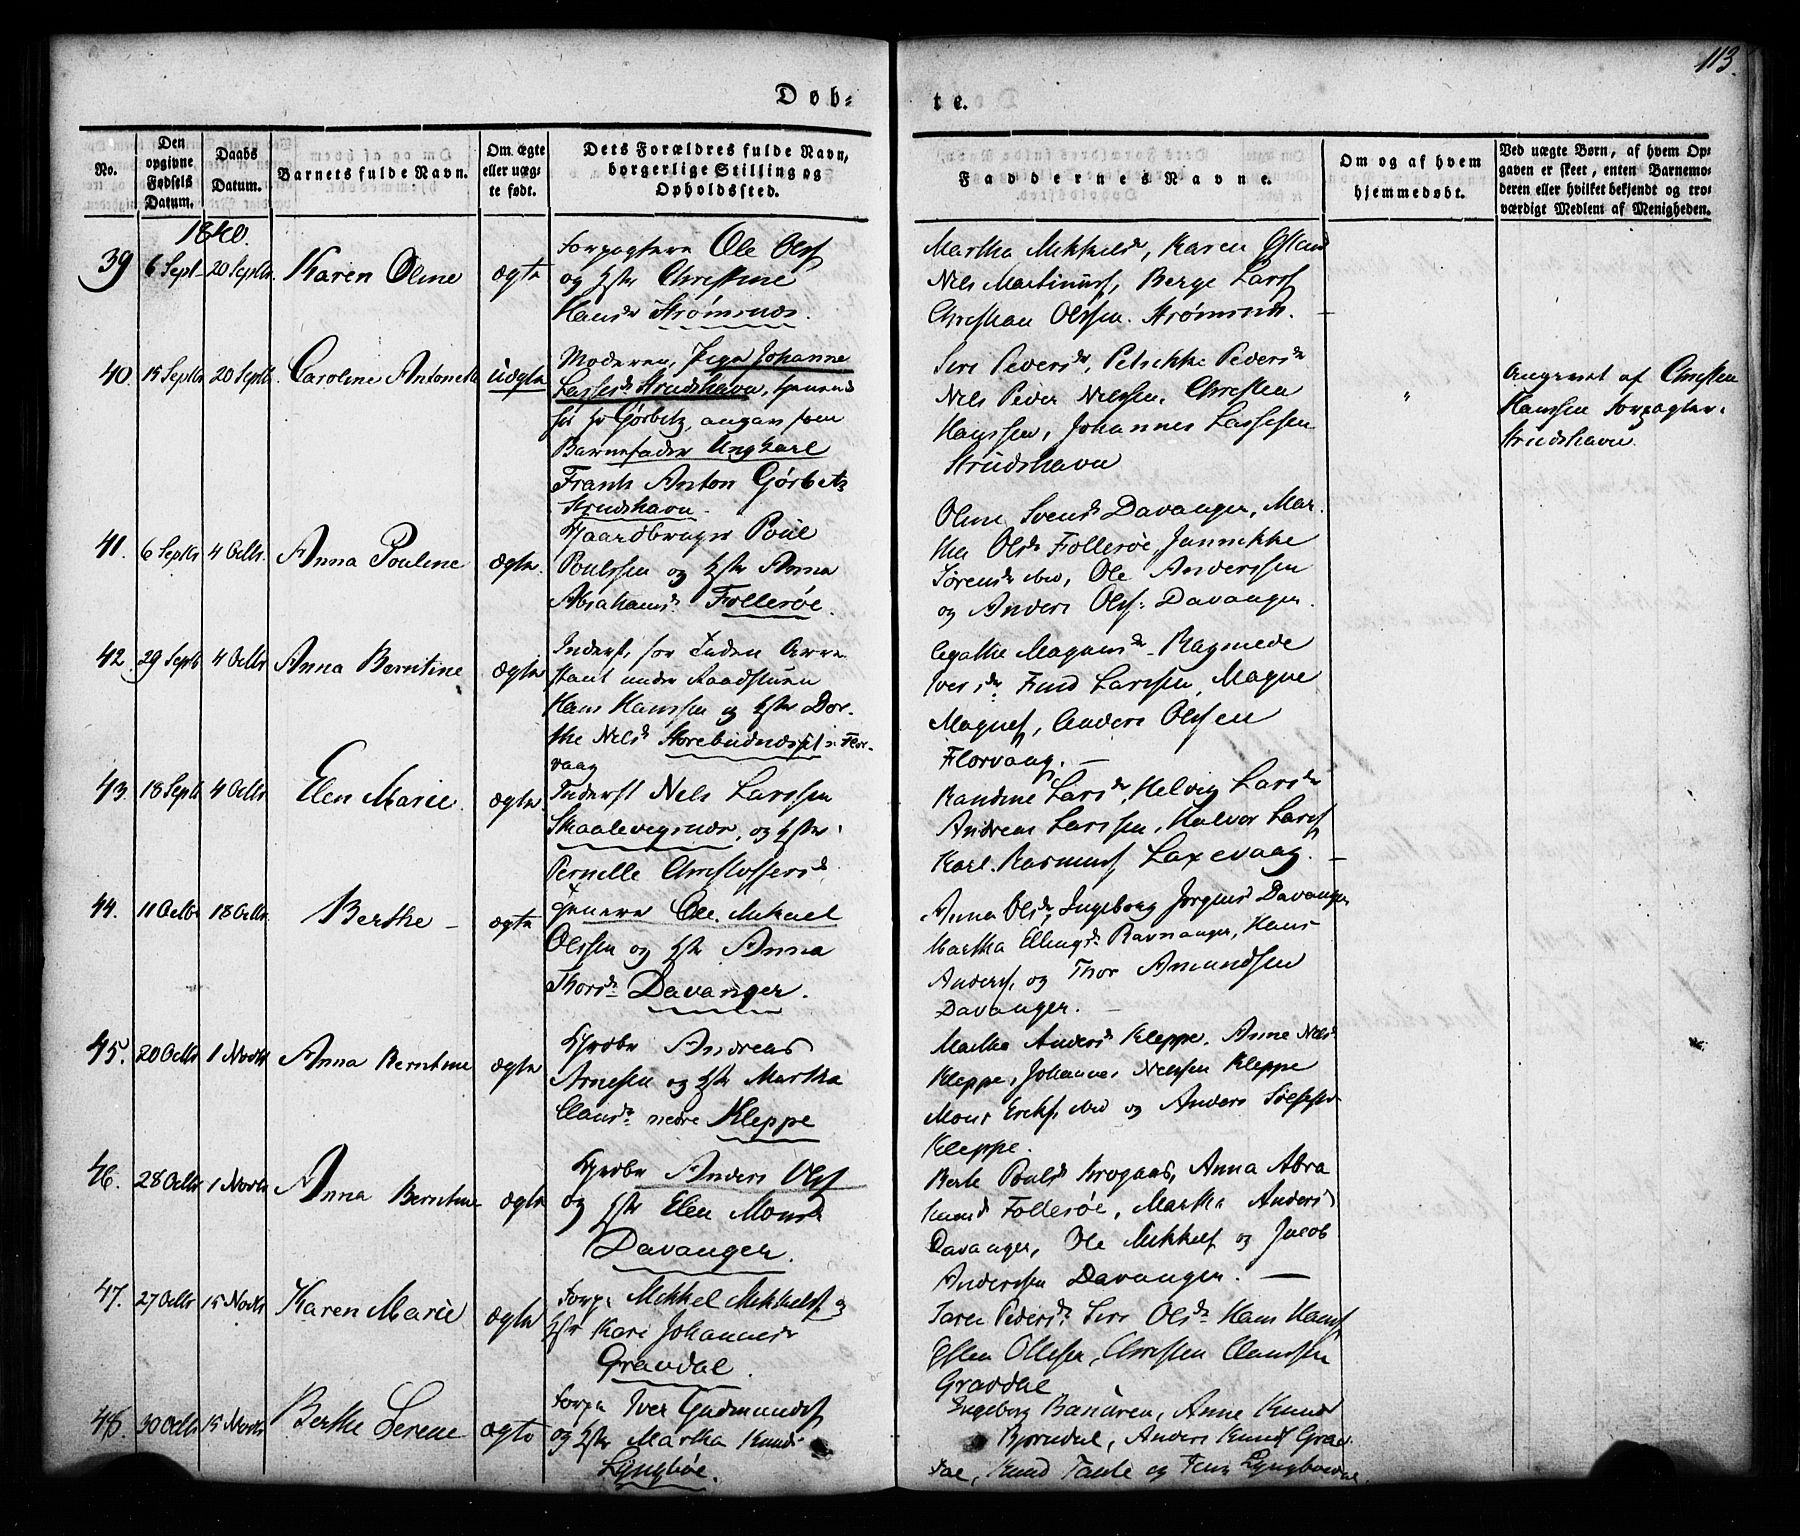 113.
Døb=
te.
No.
Den opgivne Fødsels Datum.
Daabs Datum.
Barnets fulde Navn.
Om ægte eller uægte født.
Dets Forældres fulde Navn, borgerlige Stilling og Opholdssted.
Faddernes Navne.
Om og af hvem hjemmedøbt.
Ved uægte Børn, af hvem Opgaven er skeet, enten Barnemoderen eller hvilket bekjendt og troværdigt Medlem af Menigheden.
1840.
39 6 Sept 20 Septbr Karen Oline ægte
Forpagtere Ole Ols
og Hstr Christine
Hansdr Strømsnæs.
Martha Mikkelsd, Karen
Nils Martinus, Berge Lars
Christian Olssen. Strømsnæs.
40. 15 Septbr 20 Septbr Caroline Antonette uægte
Moderen, Pige Johanne
Lassesdr Strudshavn,
Gørbitz, angav som
Barnefader Ungkarl
Frank Anton Gørbitz
Strudshavn.
Siri Pedersdr, Petrikke Pedersdr
Nils Peder Nilssen, Christen
Hanssen, Johannes Lassesen
Strudshavn
Angivet af Christen
Hanssen Forpagter
Strudshavn.
41. 6 Septbr 4 Octbr Anna Pouline ægte.
Gaardbruger Poul
Poulssen og Hstr Anna
Abrahamsdr Follesøe.
Oline Svensdr Davanger, Mar-
tha Olsdr Follesøe, Jannikke
Sørensdr ibid, Ole Anderssen
og Anders Ols: Davanger.
42. 29 Septb 4 Octbr Anna Berntine ægte
Inderst, for Tiden Arre
stant under Raadstuen
Hans Hanssen og Hstr Dor-
the Nilsdr Storebudnæsset i Flor-
vaag
Agathe Magnusdr Ragnilde
Iversdr. Knud Larssen, Magne
Magnes, Anders Olssen
Florvaag. —
43. 18 Septb 4 Octbr Elen Marie. ægte
Inderst Nils Larssen
Skaalevignæs, og Hstr
Pernille Christoffersd.
Randine Larsdr, Helvig Larsdr
Andreas Larssen, Halvor Lars
Karl Rasmus Laxevaag. —
44. 11 Octbr 18 Octbr. Berthe – ægte
Ole Mikael
Olssen og Hstr Anna
Thorsdr Davanger.
Anna Olsdr, Ingeborg Jørgens Davanger
Martha Ellingsdr Ravnanger, Hans
Anders, og Thor Amundsen
Davanger. —
45. 20 Octbr 1 Novbr Anna Berntine ægte
Gbrdbr Andreas
Arnesen og Hstr Martha
Clausdr nedre Kleppe
Martha Andersdr Kleppe. Anne Nilsdr
Kleppe, Johannes Nilssen Kleppe
Mons Eriks ibid og Anders
Kleppe.
46. 28 Octbr 1 Novbr Anna Berntine ægte
Gbrdbr Anders Ols
og Hstr Elen Monsdr
Davanger.
Berte Poulsd Krogaas, Anna Abra
hamsd Follesøe, Martha Andersd
Davanger, Ole Mikkels og Jacob
Anderssen Davanger. —
47. 27 Octbr 15 Novbr Karen Marie ægte
Forp. Mikkel Mikkels og
Hstr Kari Johannesdr
Gravdal.
Pedersdr Siri Olsdr Hans Hans
Olssen, Christen Claussen
Gravdal
48. 30 Octbr 15 Novbr Berthe Serene ægte
Forp Iver Gudmunds
og Hstr Martha Knuds
Lyngbøe.
Ingeborg, Anne Knud
Bjørndal, Anders Knuds Grav
dal, Knud og Lyngbøedal.